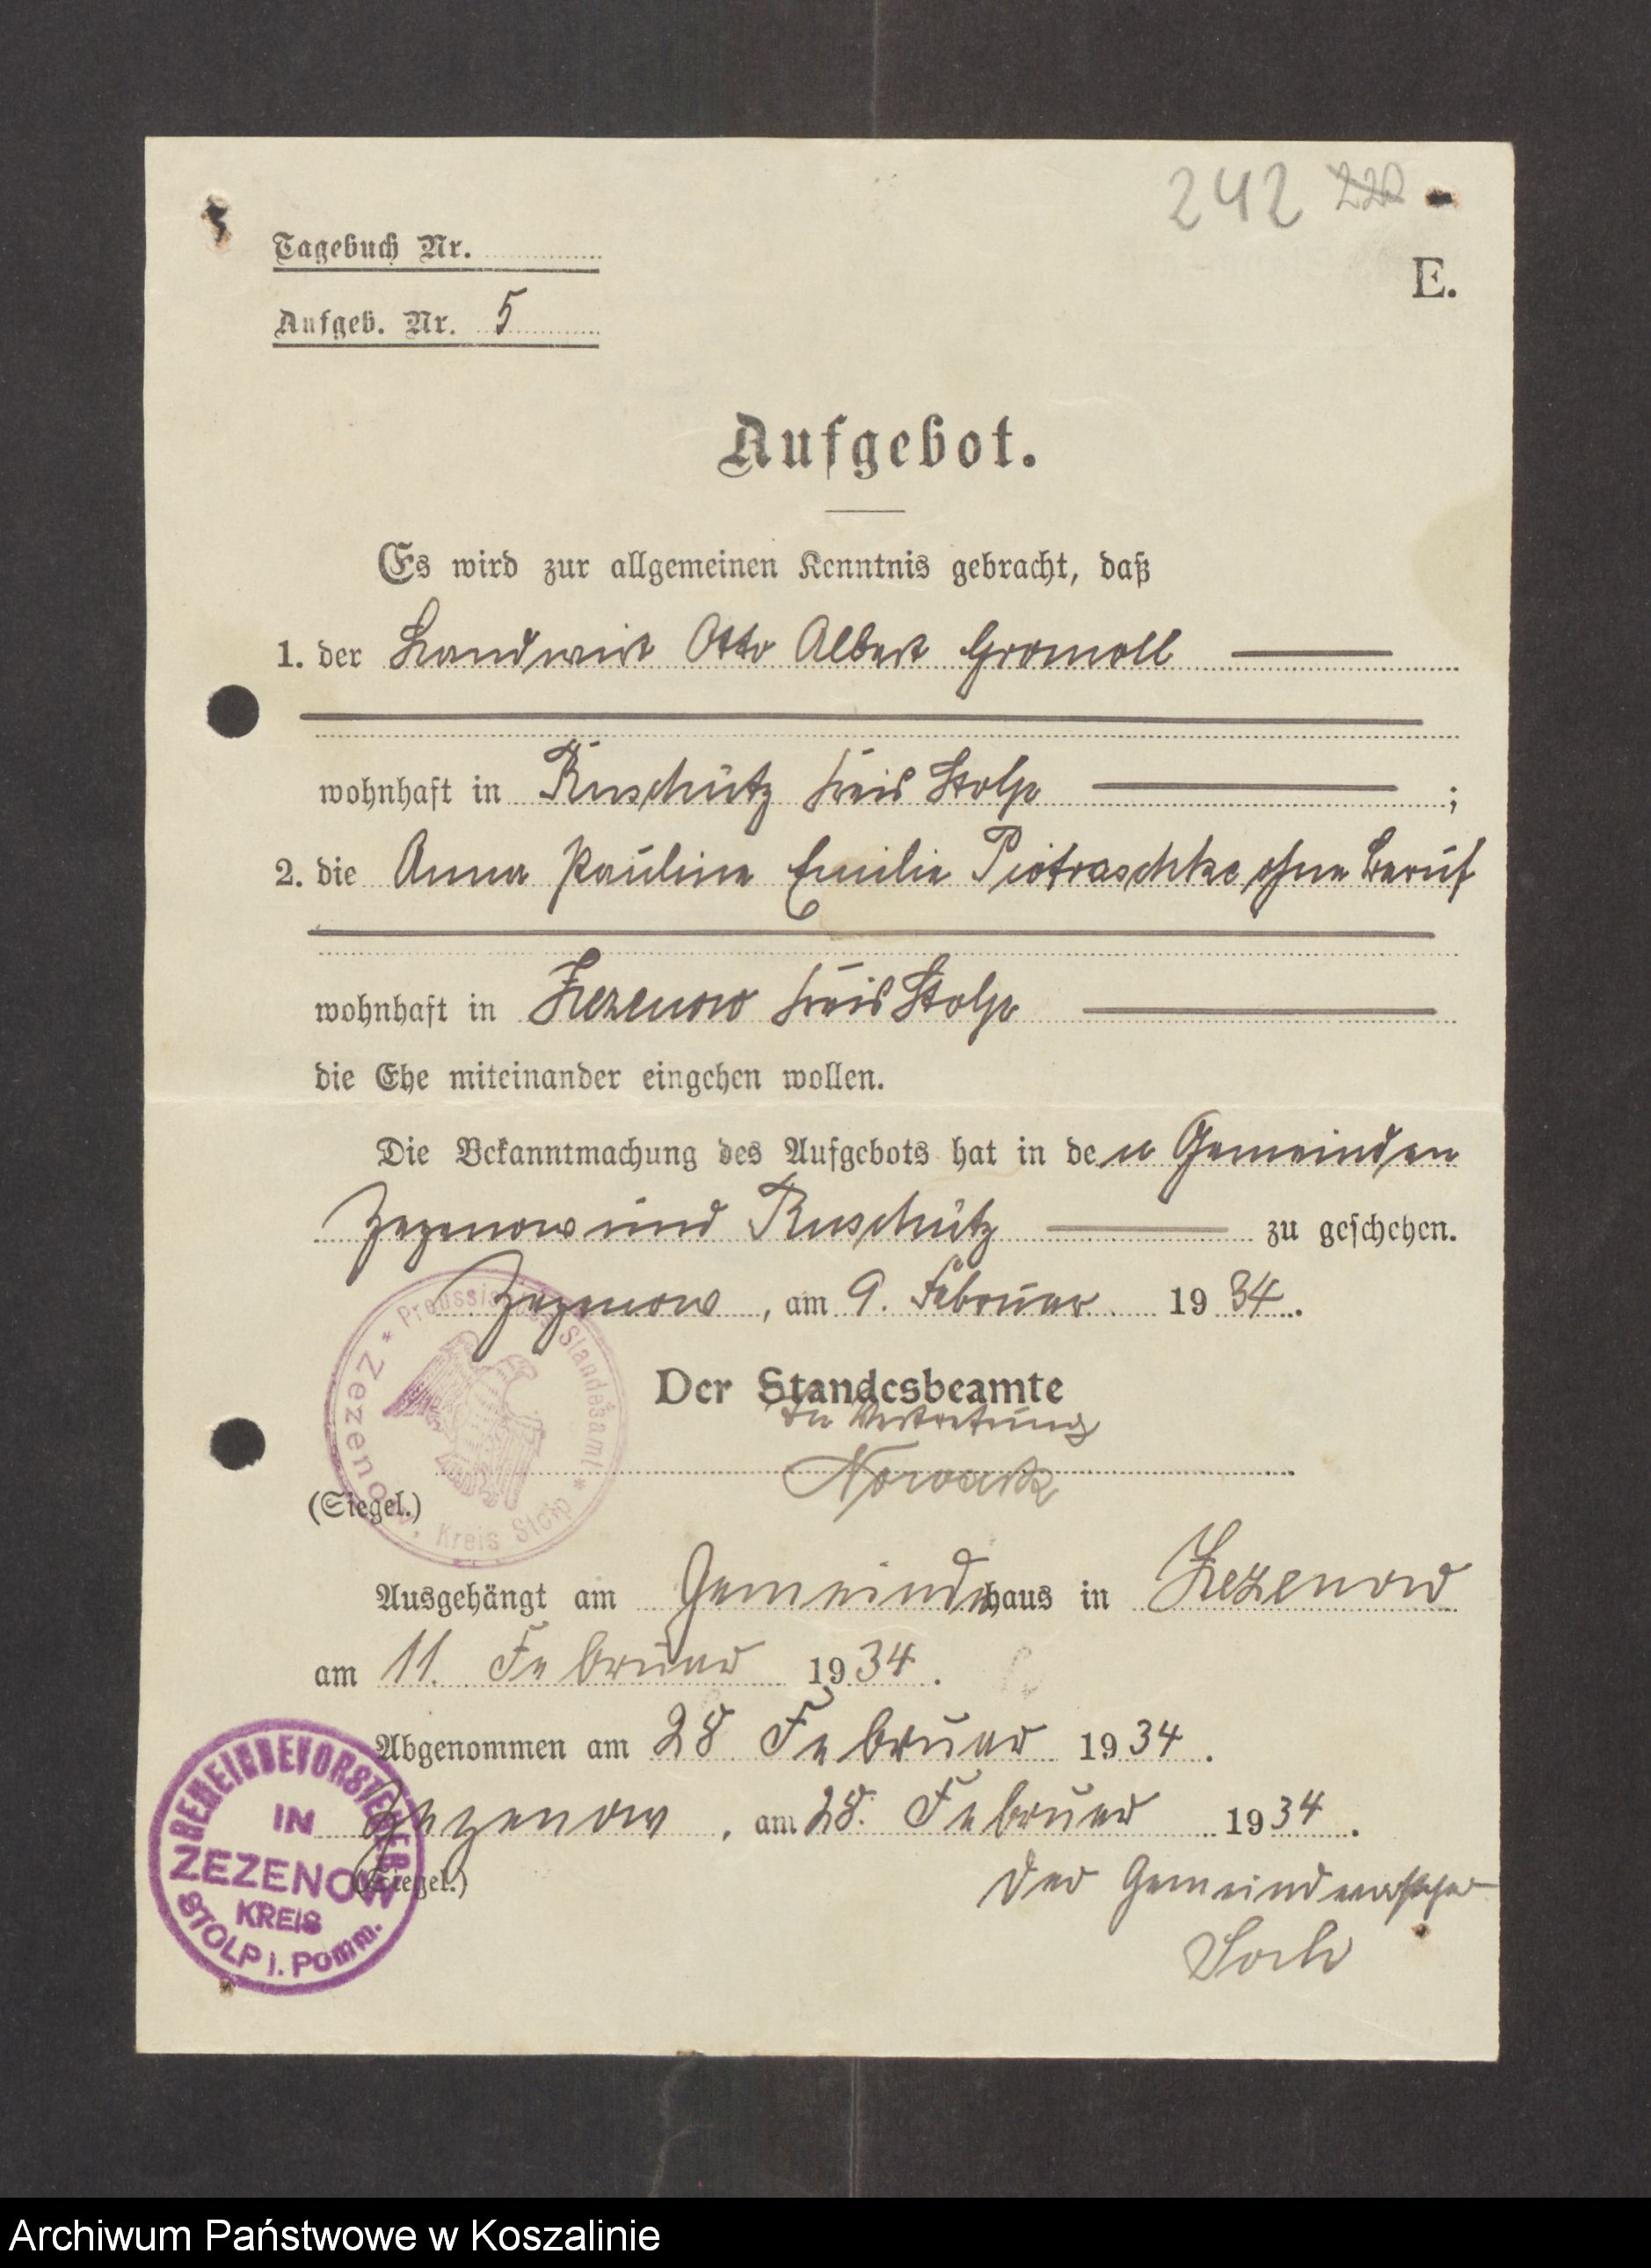 242 220
Tagebuch Nr.
E.
Aufgeb. Nr. 5
Aufgebot.
Es wird zur allgemeinen Kenntnis gebracht, daß
1. der Landwirt Otto Albert Gromoll
wohnhaft in Ruschütz Kreis Stolp ;
2. die Anna Pauline Emilie Piotraschke ohne Beruf
wohnhaft in Zezenow Kreis Stolp
die Ehe miteinander eingehen wollen.
Die Bekanntmachung des Aufgebots hat in den Gemeinden
Zezenow und Ruschütz zu geschehen.
Zezenow, am 9. Februar 1934.
Preussisches Standesamt * Zezenow, Kreis Stolp *
Der Standesbeamte
In Vertretung
Nowack
(Siegel.)
Ausgehängt am Gemeindehaus in Zezenow
am 11. Februar 1934.
Abgenommen am 28 Februar 1934.
Zezenow, am 28. Februar 1934.
GEMEINDEVORSTEHER
IN
ZEZENOW
KREIS
STOLP i. Pomm.
(Siegel.)
Der Gemeindevorsteher
Archiwum Państwowe w Koszalinie